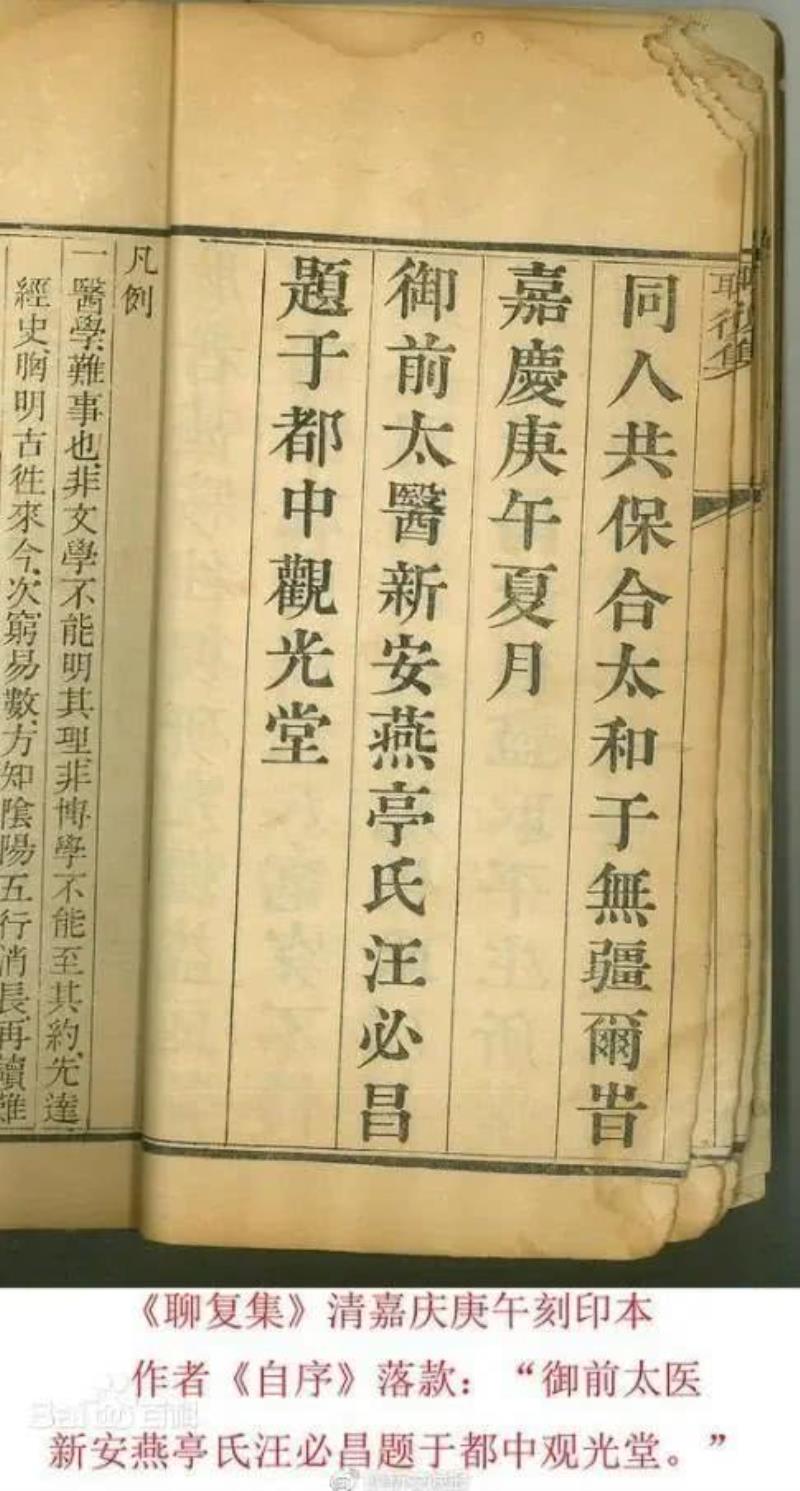 聊復集
同人共保合太和于無疆爾旹
嘉慶庚午夏月
御前太醫新安燕亭氏汪必昌
題于都中觀光堂
凡例
一醫學難事也、非文學不能明其理、非博學不能至其約、先達
經史、胸明古徃來今、次窮易數、方知陰陽五行消長、再讀難
《聊复集》清嘉庆庚午刻印本
作者《自序》落款：“御前太医
新安燕亭氏汪必昌题于都中观光堂。”
Bai百科